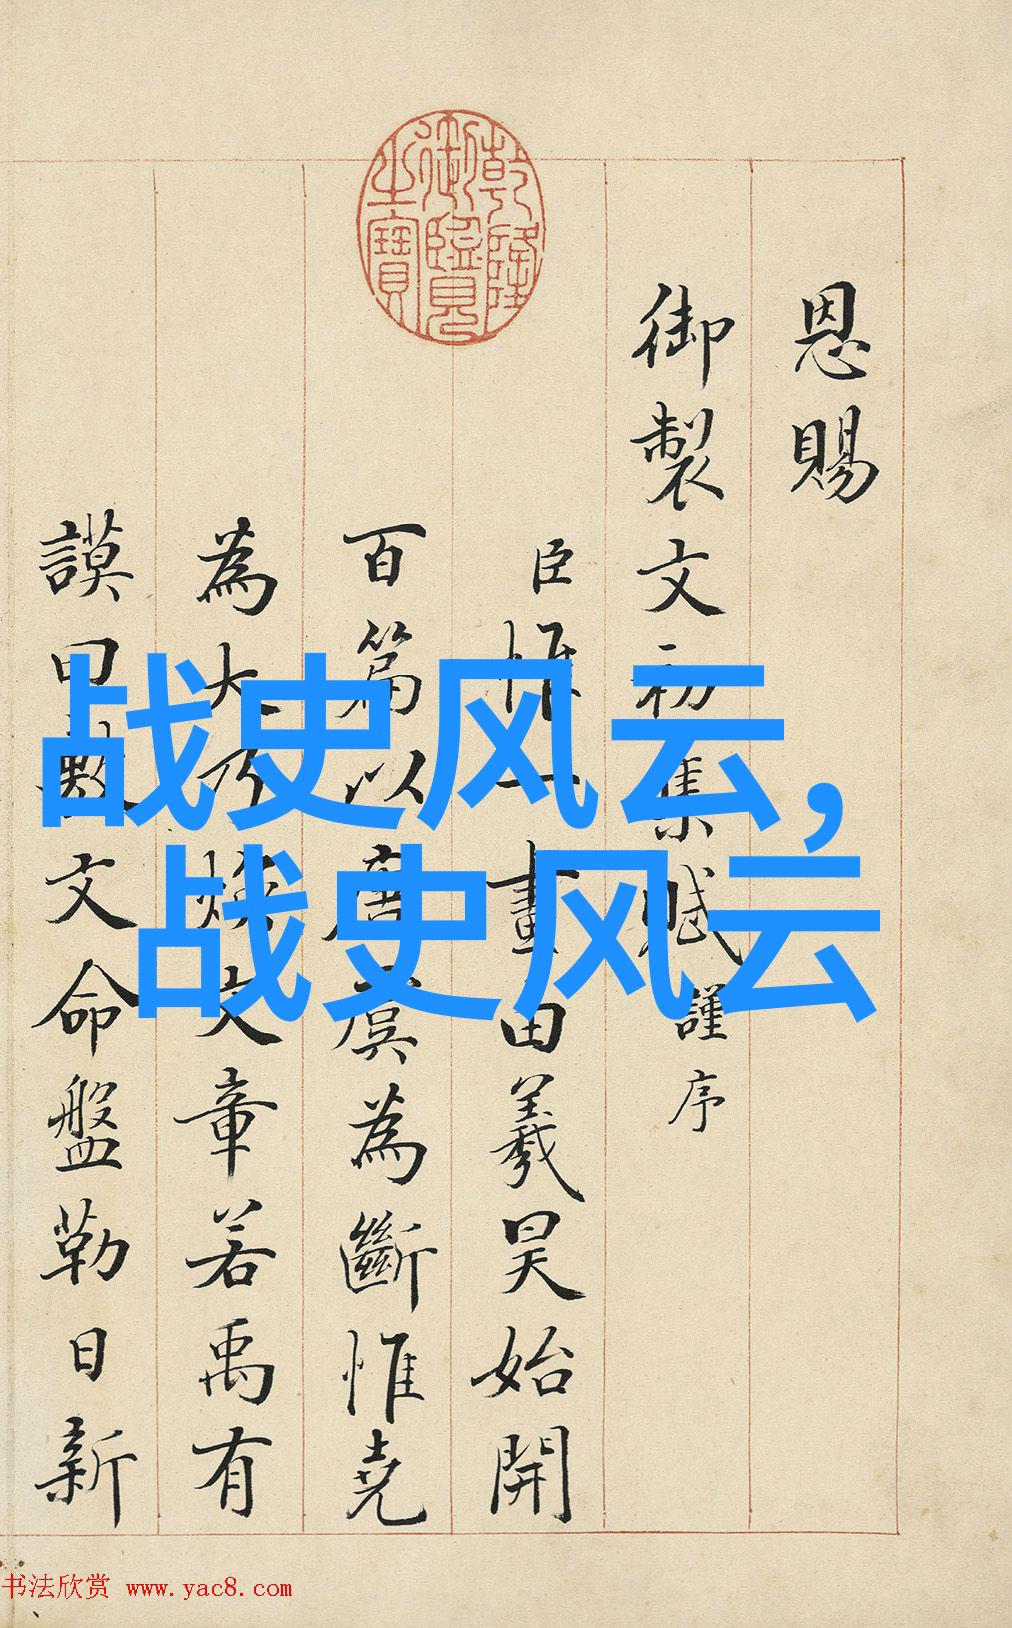 战史风云,
战史风云
乾隆
御覽
之寶
恩賜
御製文初集賦謹序
臣惟一畫由羲昊始開
百篇以唐虞為斷惟堯
為大乃煥文章若禹有
謨曰敷文命盤勒日新
书法欣赏 www.yac8.com